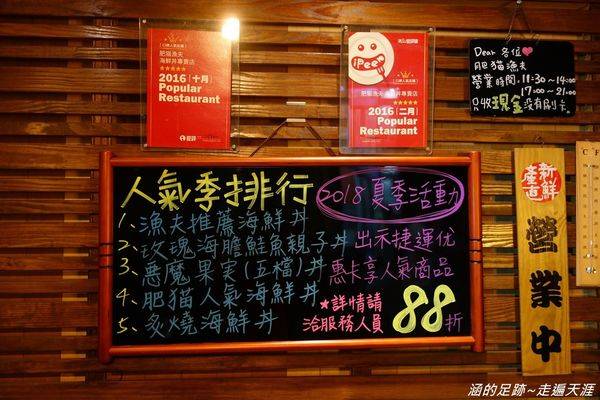 口碑人氣名店
肥貓漁夫
海鮮丼專賣店
★★★★★
2016 [十月]
Popular
Restaurant
愛評
iPeen
口碑人氣名店
肥貓漁夫 海鮮丼專賣店
★★★★★
2016 [二月]
Popular
Restaurant
Dear 各位♥
肥猫漁夫
營業時間: 11:30~14:00
17:00~21:00
只收現金沒有刷卡
人氣季排行
1、漁夫推薦海鮮丼
2、玫瑰海膽鮭魚親子丼
3、惡魔果実(五檔)丼
4、肥猫人氣海鮮丼
5、炙燒海鮮丼
2018夏季活動
出示捷運优
惠卡享人氣商品
★詳情請
洽服務人員
88折
新鮮
產直
營業中
C F
涵的足跡~走遍天涯